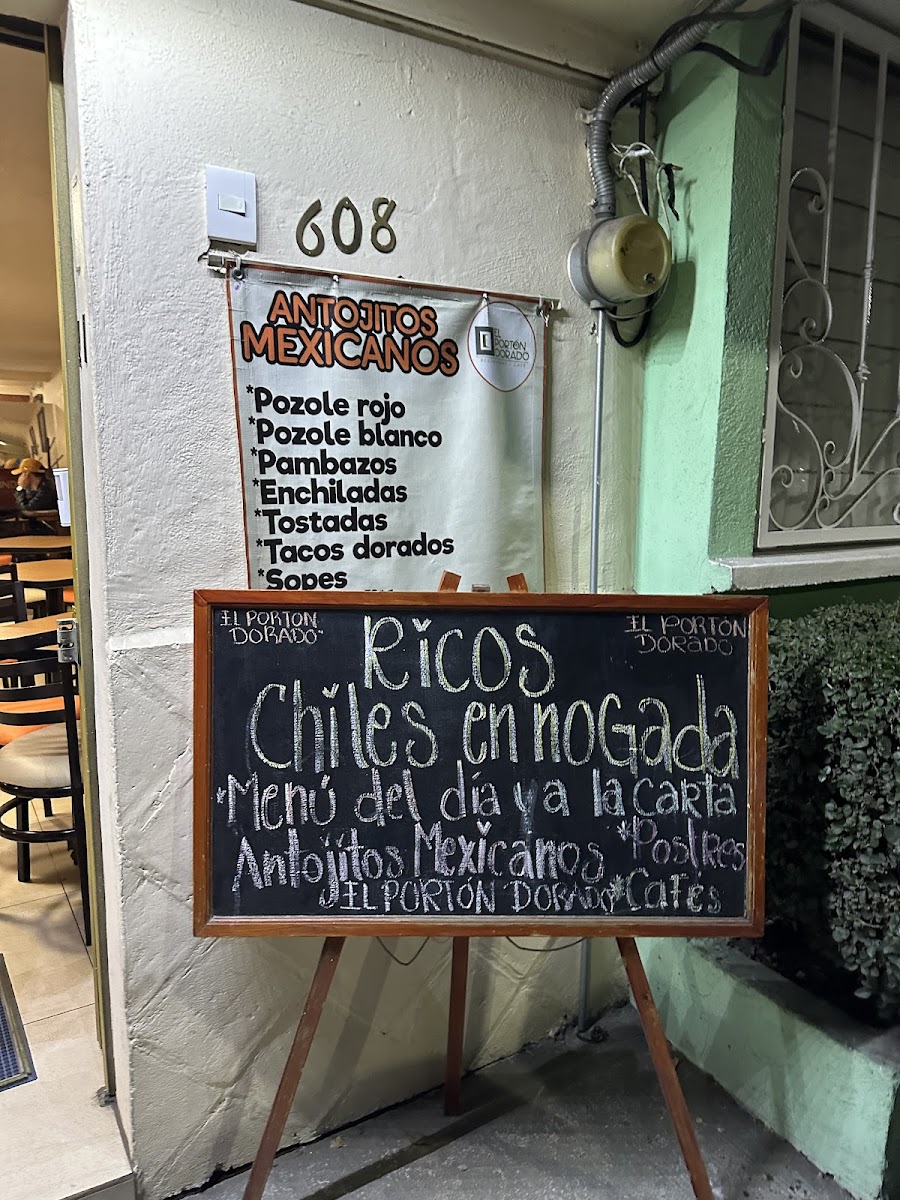 608
ANTOJITOS
MEXICANOS
EL
PORTÓN
DORADO
*Pozole rojo
*Pozole blanco
*Pambazos
*Enchiladas
*Tostadas
*Tacos dorados
*Sopes
EL PORTON
DORADO"
EL PORTÓN
DORADO
Ricos
Chiles en nogada
*Menú del día y a la carta
Antojitos Mexicanos *Postres
EL PORTÓN DORADO *Cafés